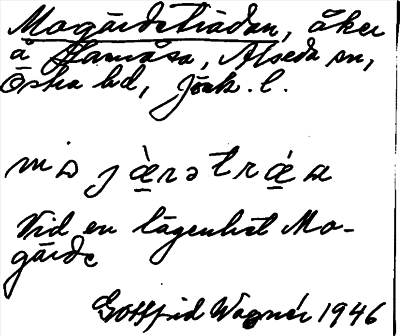 Mogärdeträdan, åker
å Hamåsa, Alseda sn,
Östra hd, Jönk. l.
mɷ jæ̀rətrǽa
Vid en lägenhet Mo-
gärde
Gottfrid Wagnér 1946